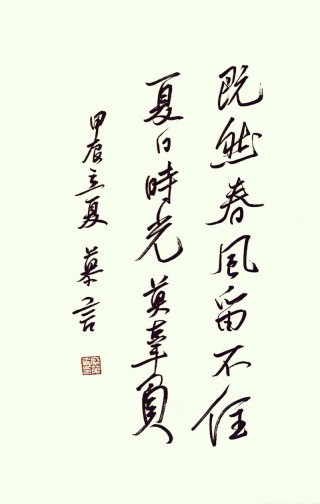 既然春风留不住
夏日時光莫辜负
甲辰立夏 慕言